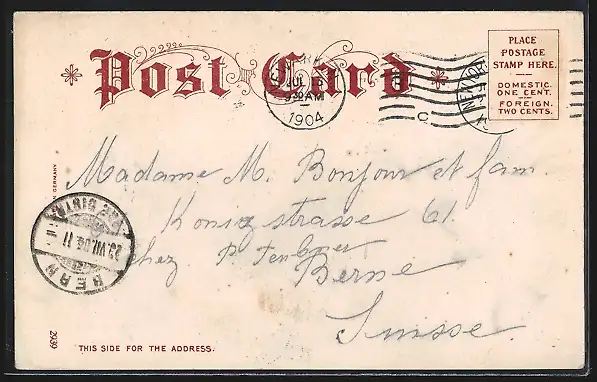 Post Card
PLACE
POSTAGE
STAMP HERE.
DOMESTIC.
ONE CENT.
FOREIGN.
TWO CENTS.
JUL
9 30 AM
1904
C
Madame M. Bonjour et fam.
Königstrasse 61.
chez P.
Berne
Suisse.
GERMANY
BERN
23.VII.04.11
2939
THIS SIDE FOR THE ADDRESS.